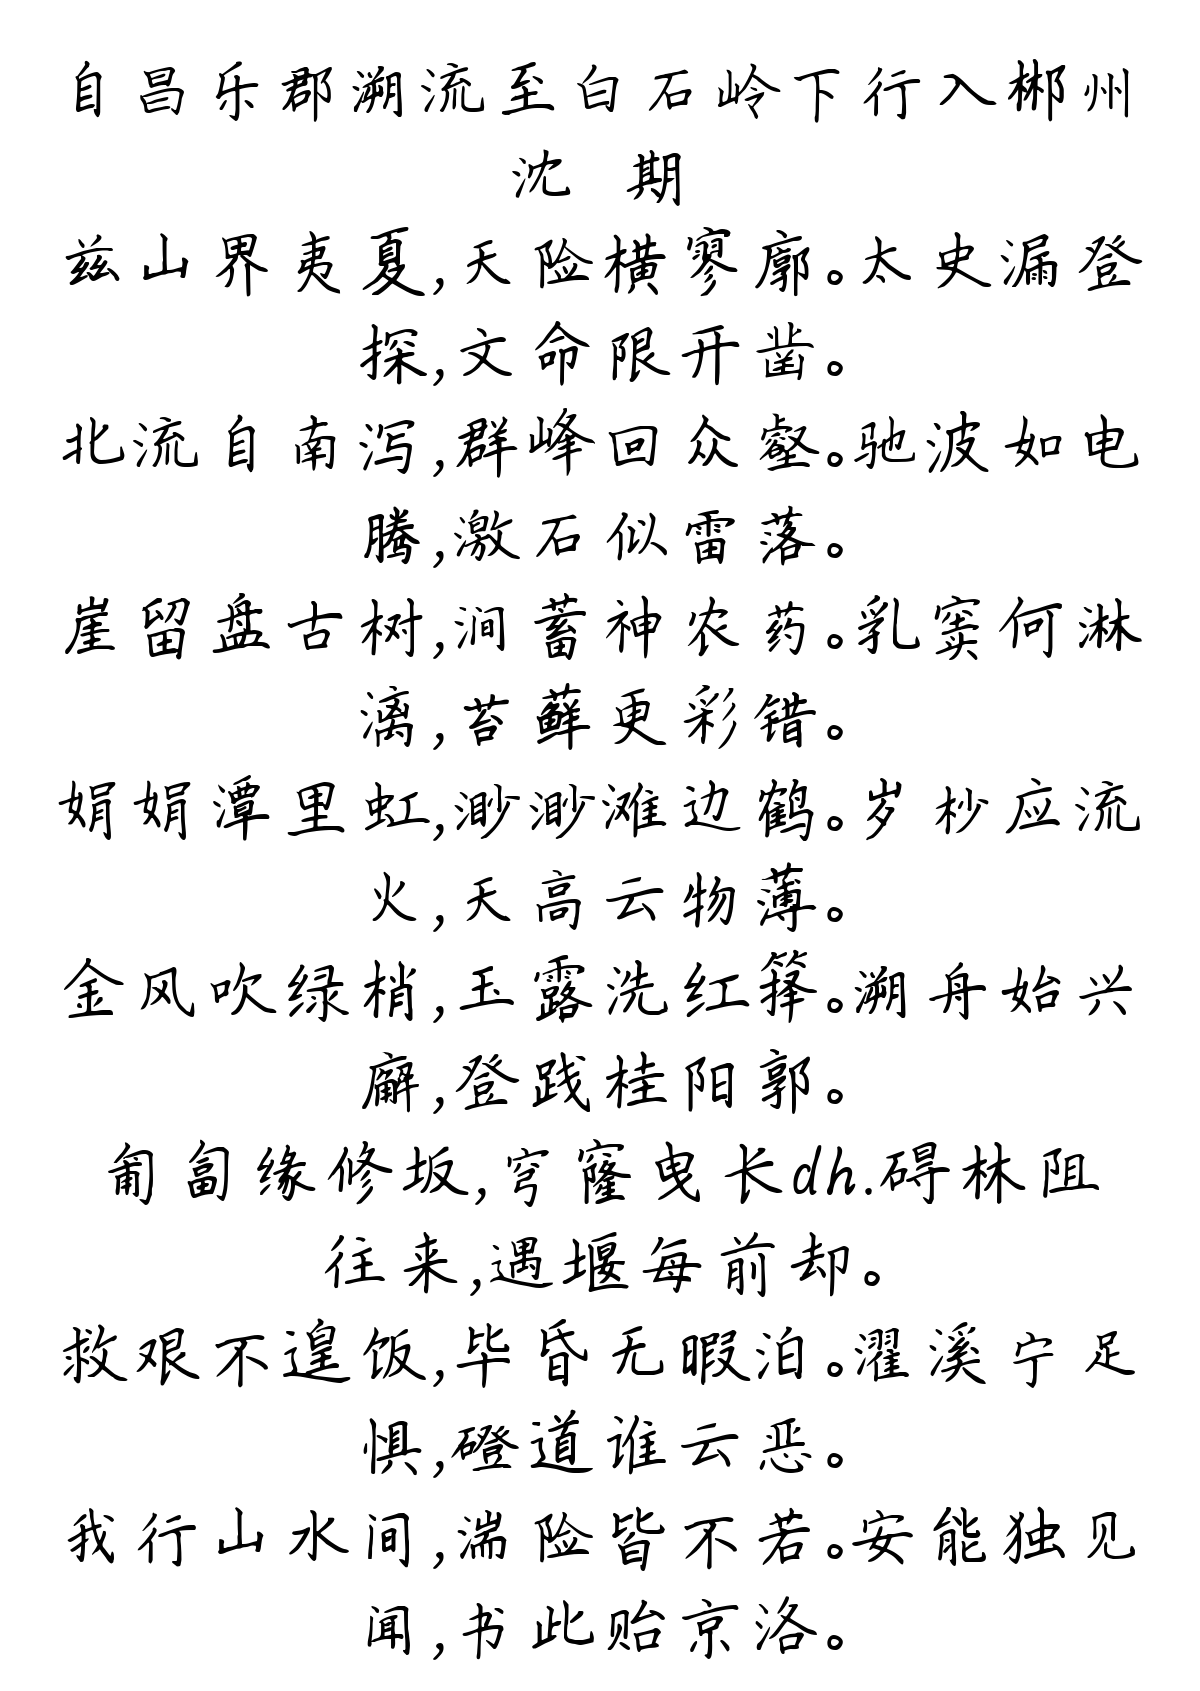 自昌乐郡溯流至白石岭下行入郴州
沈 期
兹山界夷夏,天险横寥廓。太史漏登
探,文命限开凿。
北流自南泻,群峰回众壑。驰波如电
腾,激石似雷落。
崖留盘古树,涧蓄神农药。乳窦何淋
漓,苔藓更彩错。
娟娟潭里虹,渺渺滩边鹤。岁杪应流
火,天高云物薄。
金风吹绿梢,玉露洗红箨。溯舟始兴
廨,登践桂阳郭。
匍匐缘修坂,穹窿曳长dh.碍林阻
往来,遇堰每前却。
救艰不遑饭,毕昏无暇泊。濯溪宁足
惧,磴道谁云恶。
我行山水间,湍险皆不若。安能独见
闻,书此贻京洛。